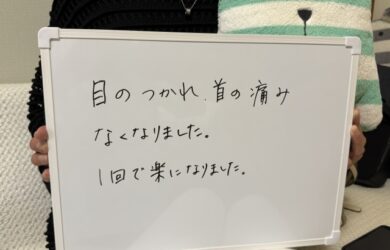 目のつかれ、首の痛み
なくなりました。
1回で楽になりました。